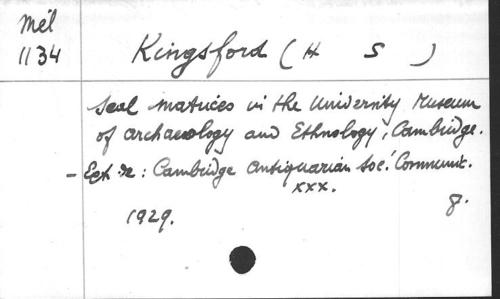 Mél
1134
Kingsford (H S )
Seal matrices in the University Museum
of archaeology and Ethnology, Cambridge.
- Ext. de : Cambridge antiquarian Soc. Communic.
xxx.
1929.
8.